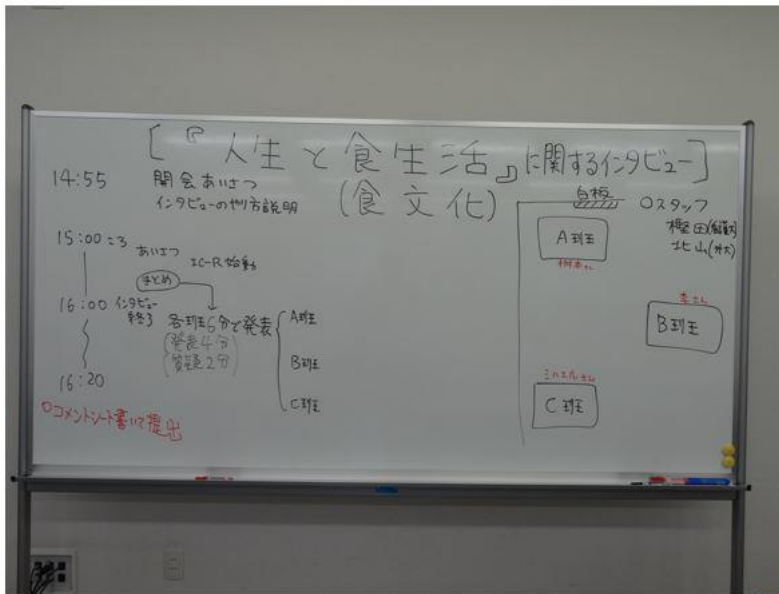 [『人生と食生活』に関するインタビュー]
(食文化)
14:55 開会あいさつ
インタビューのやり方説明
15:00ごろ あいさつ
IC-R始動
まとめ
16:00 インタビュー
終了
各班6分で発表
(発表4分
質疑2分)
A班
B班
C班
16:20
○コメントシート書いて提出
白板
○スタッフ
樫田
北山(外大)
A班
李さん
B班
ミハエルさん
C班